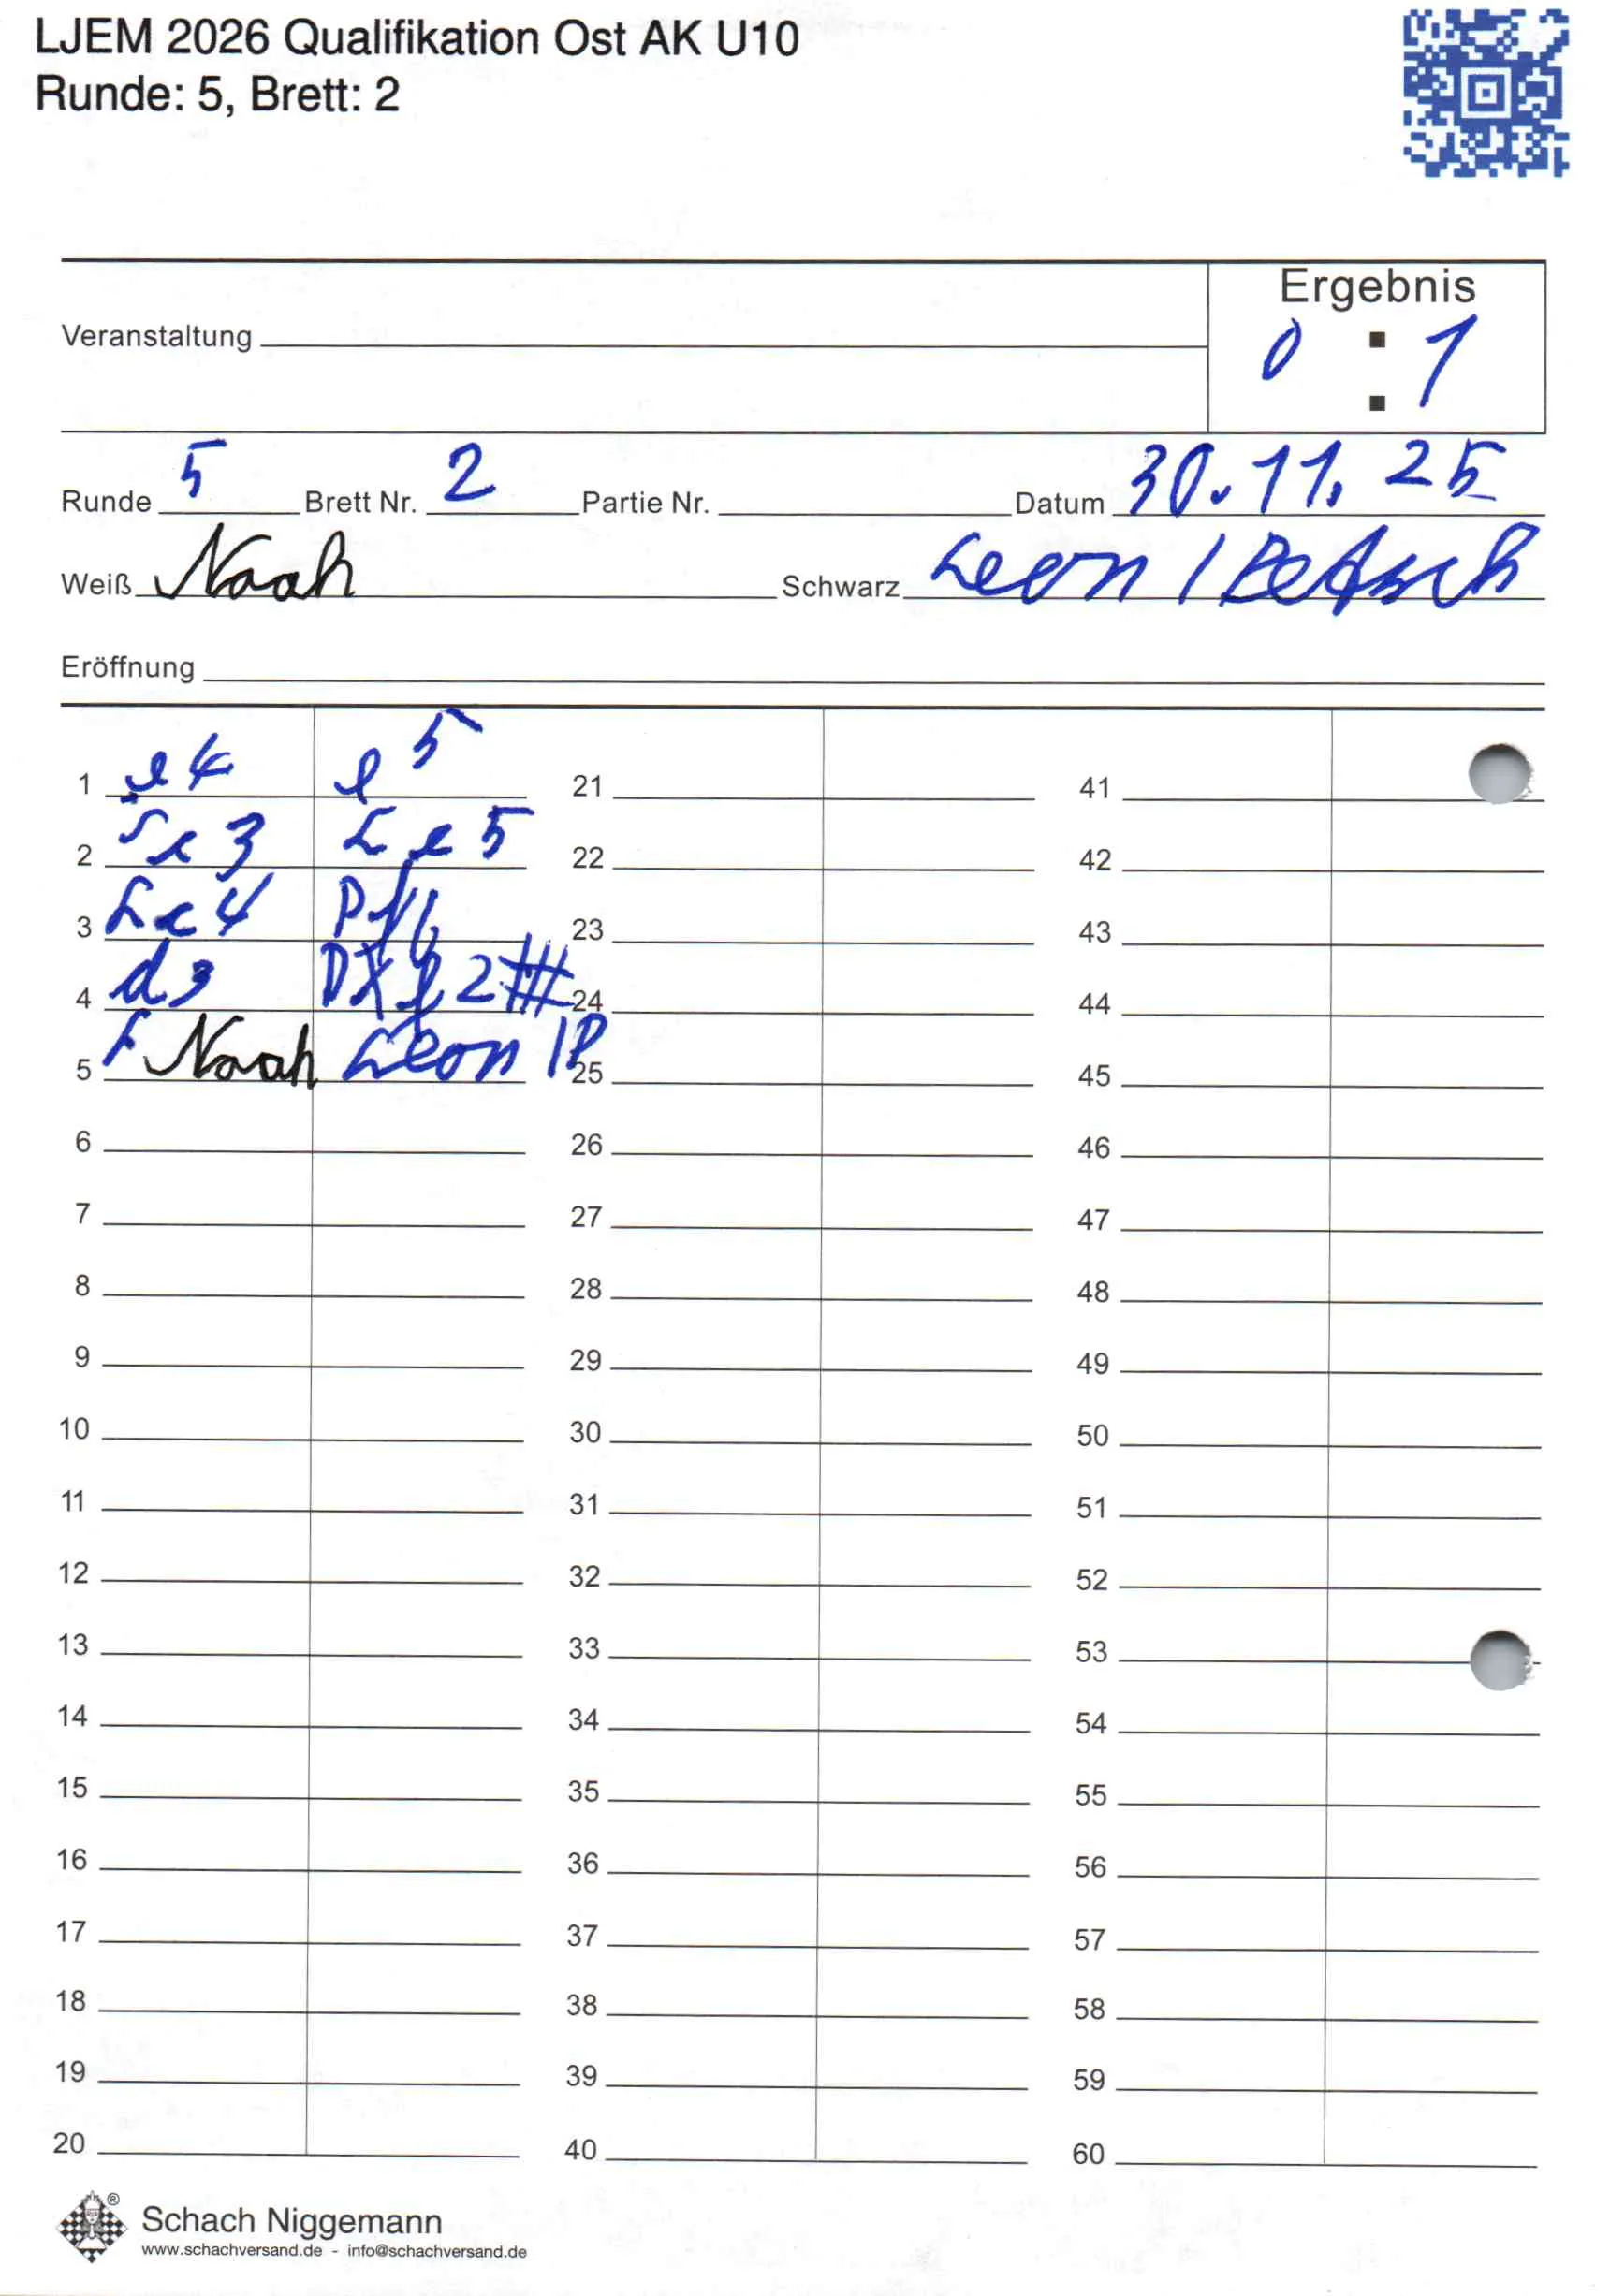 LJEM 2026 Qualifikation Ost AK U10
Runde: 5, Brett: 2
Ergebnis
0 : 1
Veranstaltung
Runde 5 Brett Nr. 2 Partie Nr. Datum 30.11.25
Weiß Noah Schwarz Leon
Eröffnung
1 e4 e5 21 41
2 Sc3 Le5 22 42
3 Lc4 Df6 23 43
4 d3 DXf2## 24 44
5 Noah Leon 25 45
6 26 46
7 27 47
8 28 48
9 29 49
10 30 50
11 31 51
12 32 52
13 33 53
14 34 54
15 35 55
16 36 56
17 37 57
18 38 58
19 39 59
20 40 60
® Schach Niggemann
www.schachversand.de - info@schachversand.de